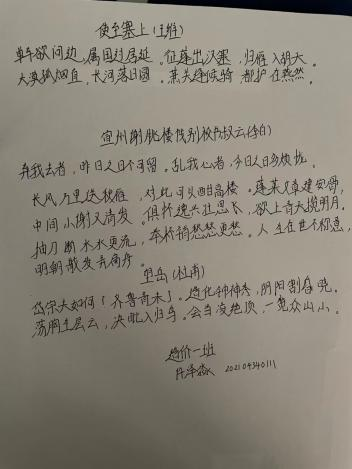 使至塞上(王维)
单车欲问边,属国过居延。征蓬出汉塞,归雁入胡天
大漠孤烟直,长河落日圆。萧关逢候骑 都护在燕然。
宣州谢朓楼饯别校书叔云(李白)
弃我去者,昨日之日不可留。乱我心者,今日之日多烦忧。
长风万里送秋雁,对此可以酣高楼。蓬莱文章建安骨,
中间小谢又清发。俱怀逸兴壮思飞,欲上青天揽明月。
抽刀断水水更流,举杯消愁愁更愁。人生在世不称意,
明朝散发弄扁舟。
望岳(杜甫)
岱宗夫如何?齐鲁青未了。造化钟神秀,阴阳割昏晓。
荡胸生层云,决眦入归鸟。会当凌绝顶,一览众山小。
造价一班
202104340111